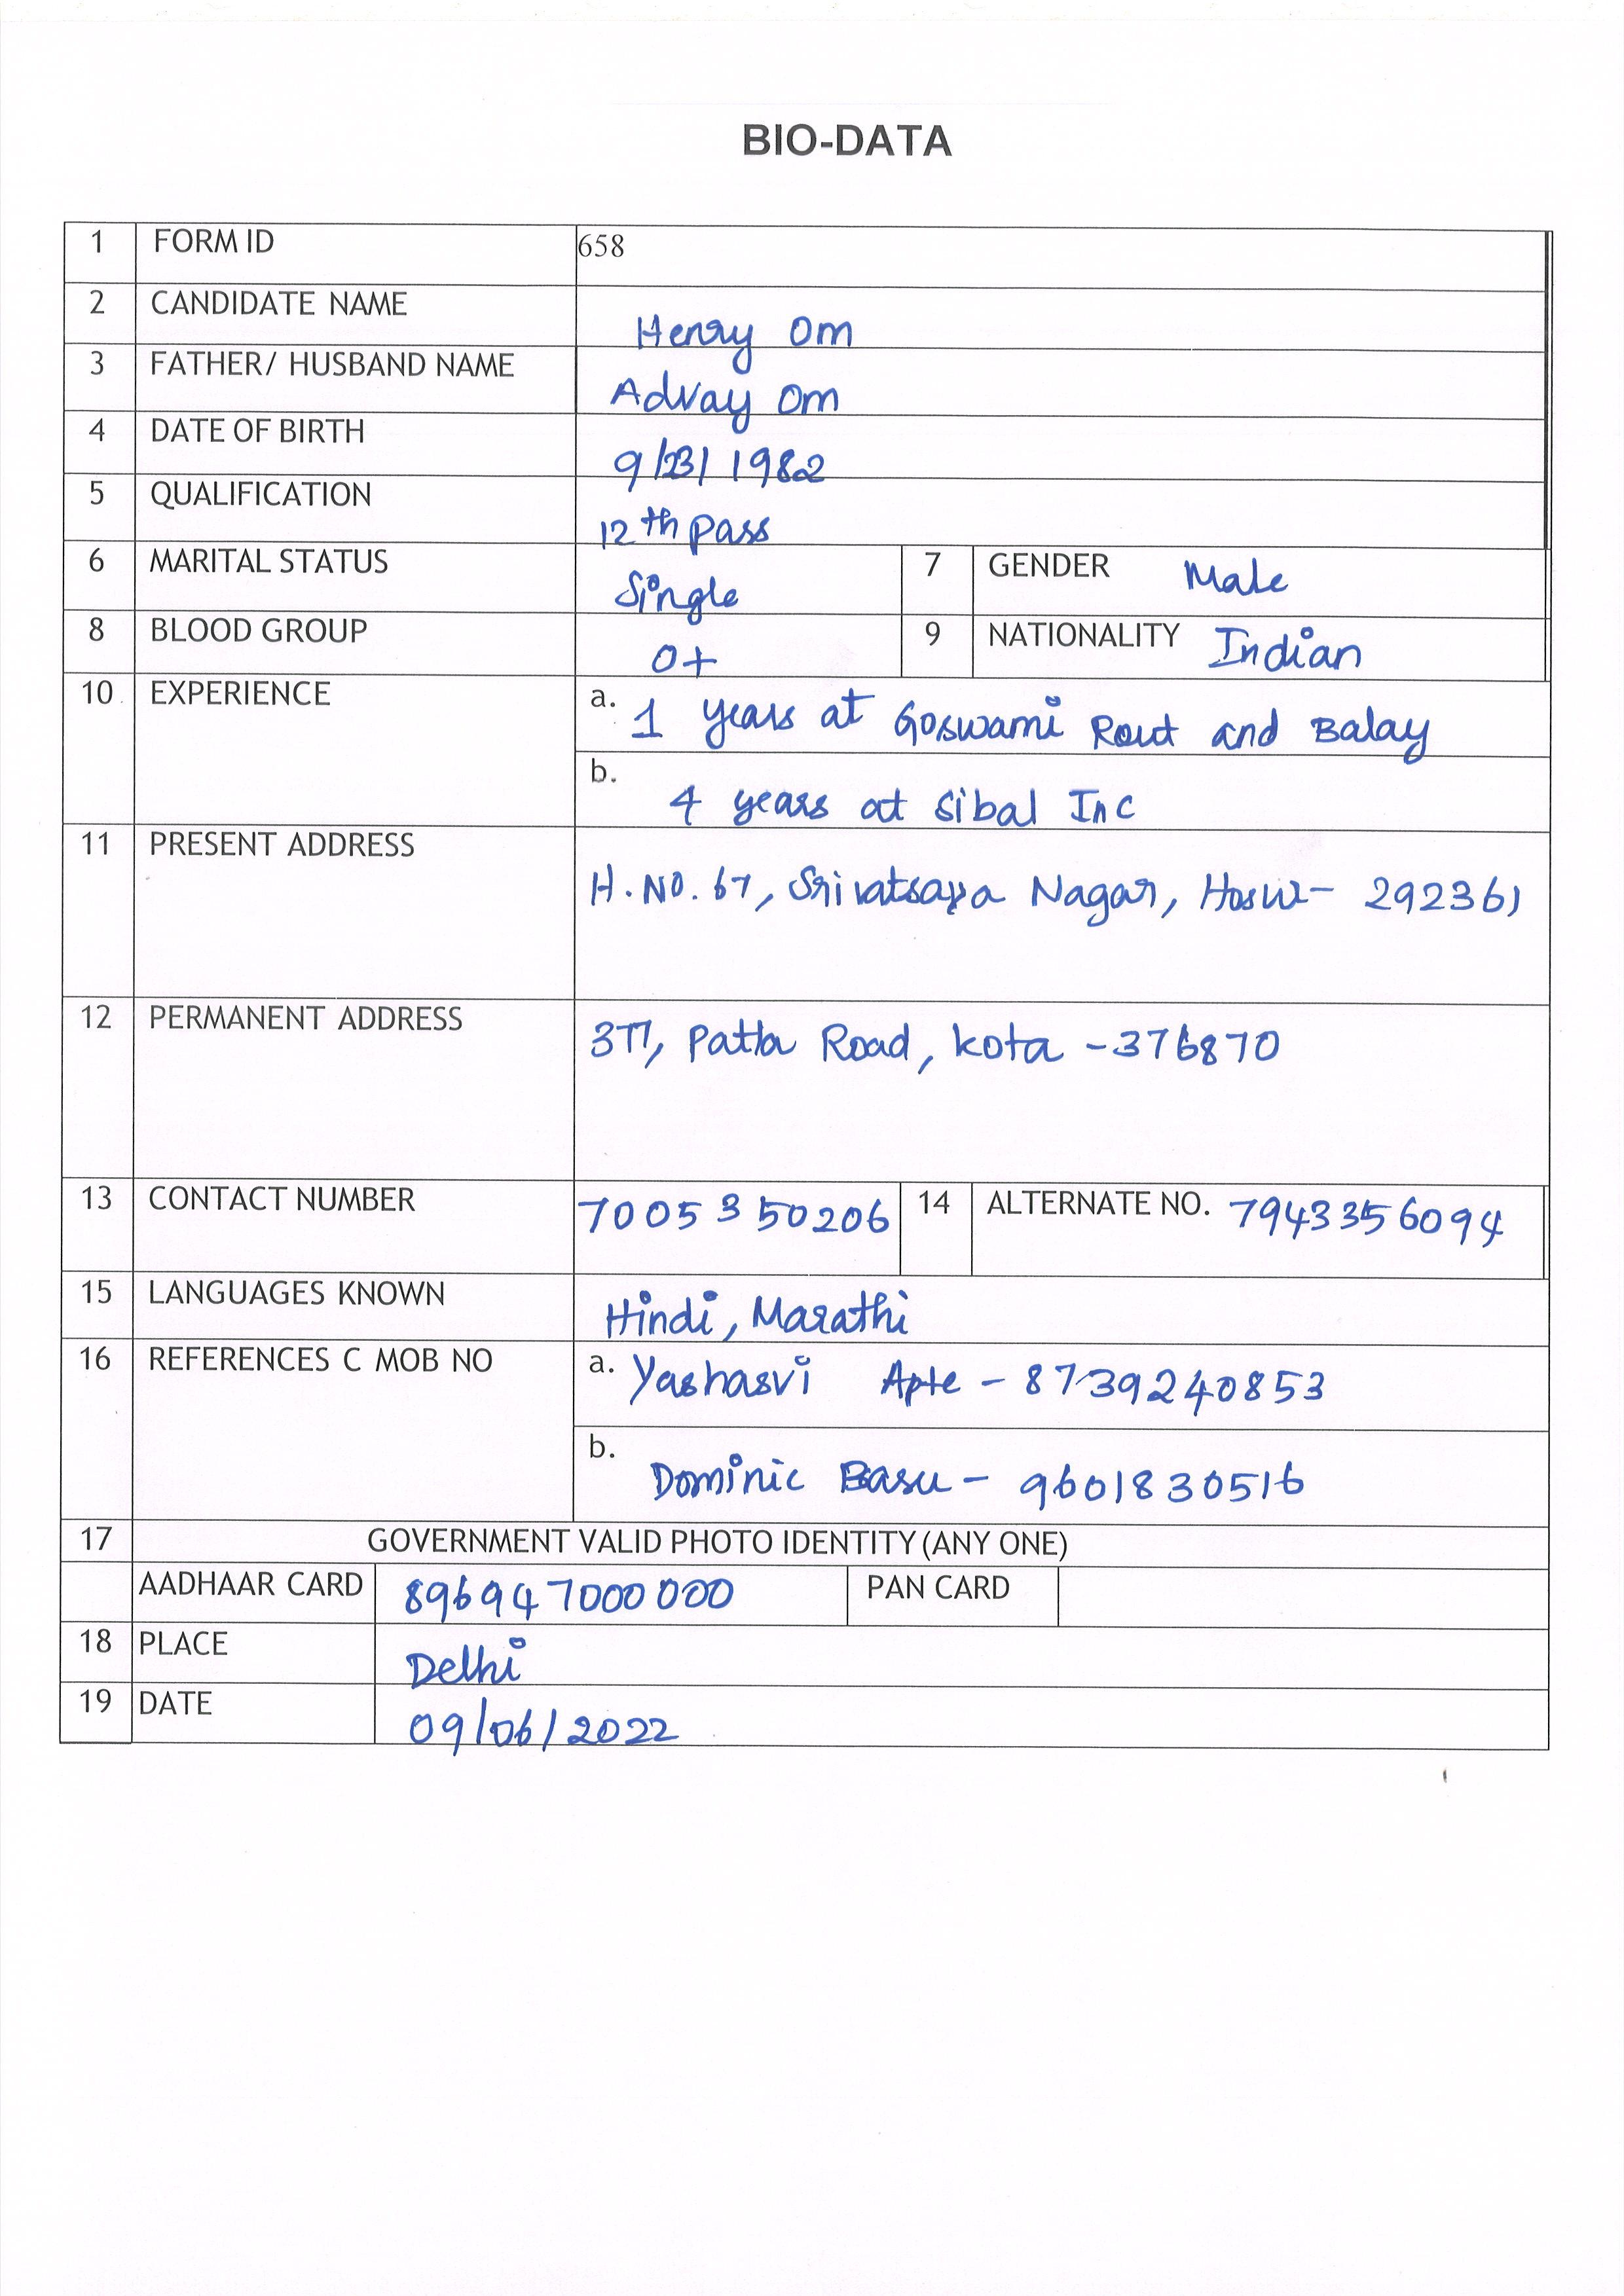 BIO-DATA
1 FORM ID 658
2 CANDIDATE NAME Henry Om
3 FATHER/ HUSBAND NAME Advay Om
4 DATE OF BIRTH 9/23/1982
5 QUALIFICATION 12th Pass
6 MARITAL STATUS Single 7 GENDER Male
8 BLOOD GROUP O+ 9 NATIONALITY Indian
10 EXPERIENCE a. 1 years at Goswami Rout and Balay
b. 4 years at Sibal Inc
11 PRESENT ADDRESS H.NO. 67, Srivatsaya Nagar, Hosur- 292361
12 PERMANENT ADDRESS 377, Patla Road, Kota -376870
13 CONTACT NUMBER 7005350206 14 ALTERNATE NO. 7943356094
15 LANGUAGES KNOWN Hindi, Marathi
16 REFERENCES C MOB NO a. Yashasvi Apte - 8739240853
b. Dominic Basu - 9601830516
17 GOVERNMENT VALID PHOTO IDENTITY (ANY ONE)
AADHAAR CARD 896947000000 PAN CARD
18 PLACE Delhi
19 DATE 09/06/2022